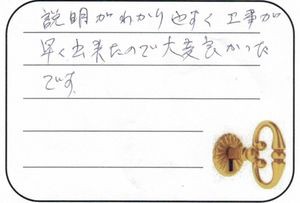 説明がわかりやすく工事が
早く出来たので大変良かった
です。